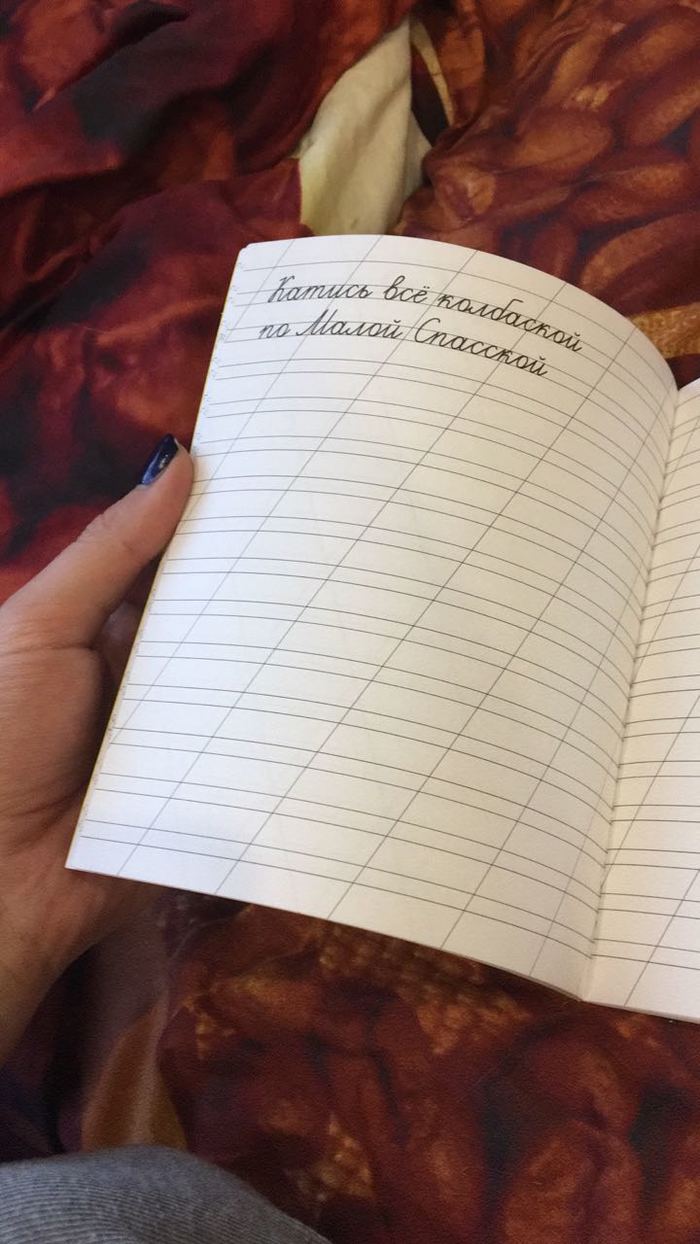 Катись всё колбаской
по Малой Спасской